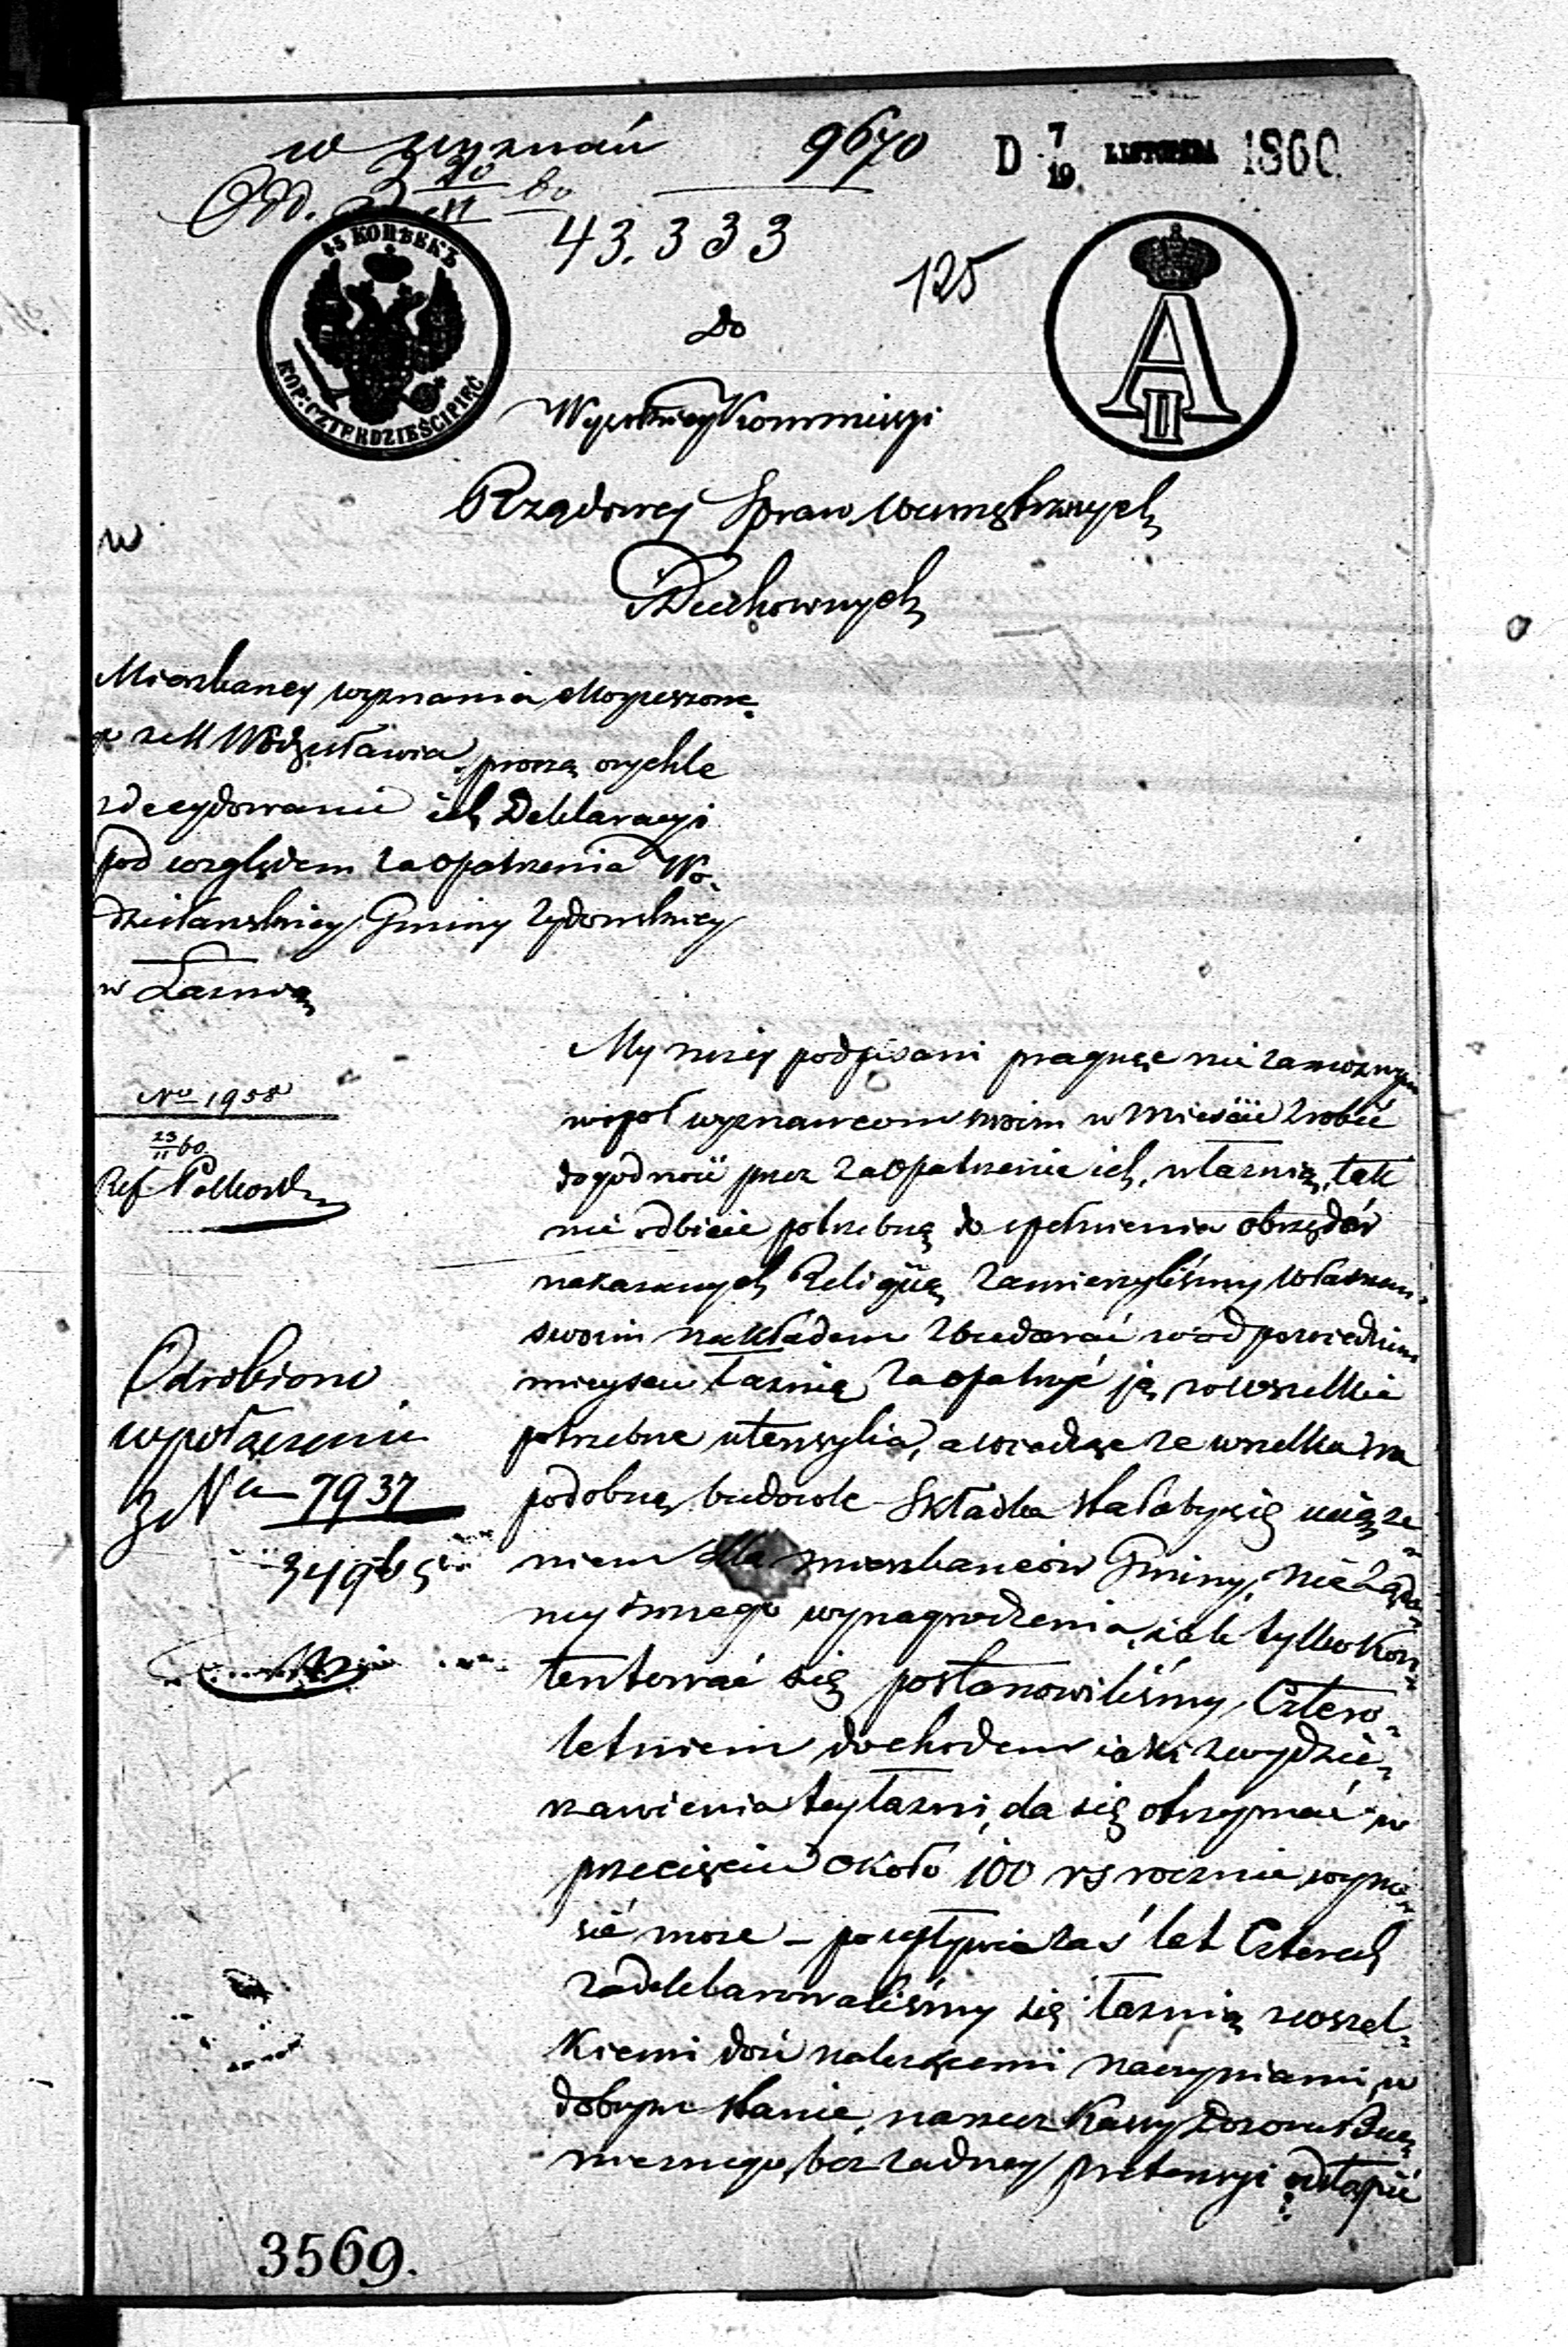 w wyznań
9670
D 7/19 LISTOPADA 1860
43.333
125
45 КОПѢЕКЪ
KOP: CZTERDZIEŚCI PIĘĆ
A II
do
Wysokiey Kommissyi
Rządowey Spraw Wewnętrznych
i Duchownych
w
Mieszkancy wyznania Moyżeszowe
z M Wodzisławia proszą o rychłe
zdecydowanie ich Deklaracyi
pod względem zaopatrzenia Wo-
dzisławskiey Gminy Żydowskiey
w Łaznią
No 1958
23/11 60
Ref
Odrobiono
w połączeniu
z Nu 7937
My niżey podpisani pragnąc nie zamożnym
współ wyznawcom swoim w Mieście zrobić
dogodność przez zaopatrzenie ich, w łaznią, tak
nie odbicie potrzebną do spełnienia obrzędów
nakazanych Religiią, zamierzyliśmy własnem
swoim nakładem zbudować w odpowiednim
mieyscu łaznią zaopatrzyć ją w wszelkie
potrzebne utensylia, a wiedząc że wszelka na
podobną budowle składka stałaby się uciąże
niem dla mieszkanców Gminy, nie żąda
my innego wynagrodzenia, iak tylko kon-
tentować się postanowiliśmy, Cztero-
letniem dochodem iaki z wydzie-
rzawienia tey łazni, da się otrzymać w
przecięciu około 100 rs rocznie wyno-
sić może – po upływie zaś lat Czterech
zadeklarowaliśmy się łaznią z wszel-
kiemi doń należącemi naczyniami, w
dobrym stanie, na rzecz Kassy Dozoru Bóż
niczego, bez żadney pretensyi odstąpić
3569.